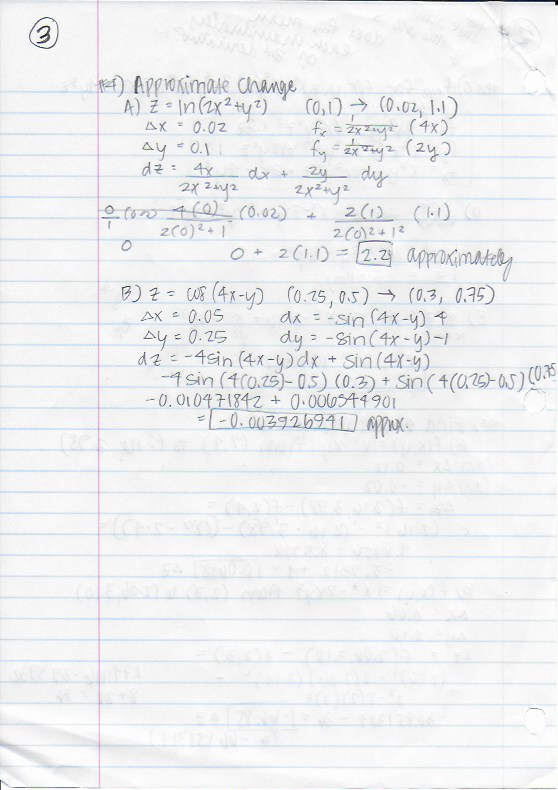 3
#4) Approximate Change
A) z = ln(2x²+y²) (0,1) → (0.02, 1.1)
Δx = 0.02 fx = 1/2x²+y² (4x)
Δy = 0.1 fy = 1/2x²+y² (2y)
dz = 4x/2x²+y² dx + 2y/2x²+y² dy
0/1 4(0)/2(0)²+1 (0.02) + 2(1)/2(0)²+1² (1.1)
0 0 + 2(1.1) = 2.2 approximately
B) z = cos(4x-y) (0.25, 0.5) → (0.3, 0.75)
Δx = 0.05 dx = -sin(4x-y) 4
Δy = 0.25 dy = -sin(4x-y)-1
dz = -4sin(4x-y)dx + sin(4x-y)
-4sin(4(0.25)-0.5)(0.3) + sin(4(0.25)-0.5)(0.75
-0.010471842 + 0.006544901
= -0.003926941 approx.